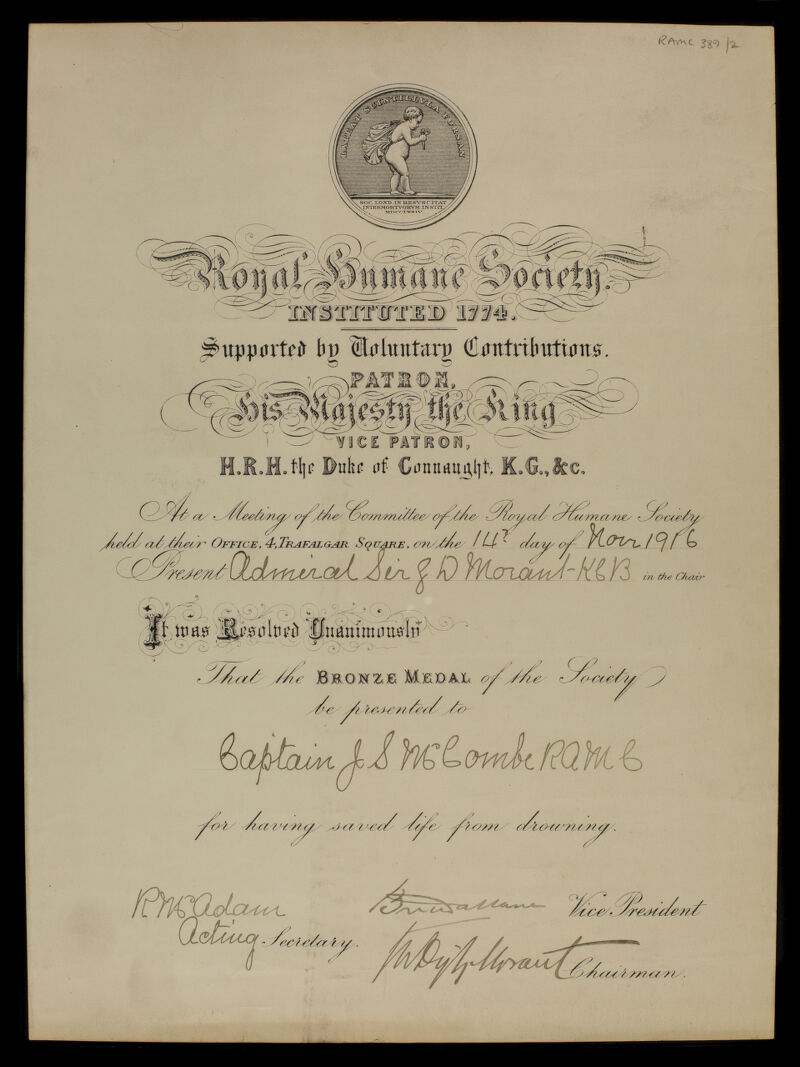 RAMC 389/2
LATEAT SCINTILLVLA FORSAN
SOC. LOND. IN RESVSCITAT
INTERMORTVORVM INSTIT.
MDCCLXXIV
Royal Humane Society.
INSTITUTED 1774.
Supported by Voluntary Contributions.
PATRON,
His Majesty the King
VICE PATRON,
H.R.H. the Duke of Connaught, K.G., &c.
At a Meeting of the Committee of the Royal Humane Society
held at their OFFICE, 4, TRAFALGAR SQUARE, on the 14th day of Novr 1916
Present Admiral Sir G D Morant KCB in the Chair
It was Resolved Unanimously
That the BRONZE MEDAL of the Society
be presented to
Captain J S McCombe RAMC
for having saved life from drowning.
R McAdam
Vice President
Acting Secretary.
Morant Chairman.